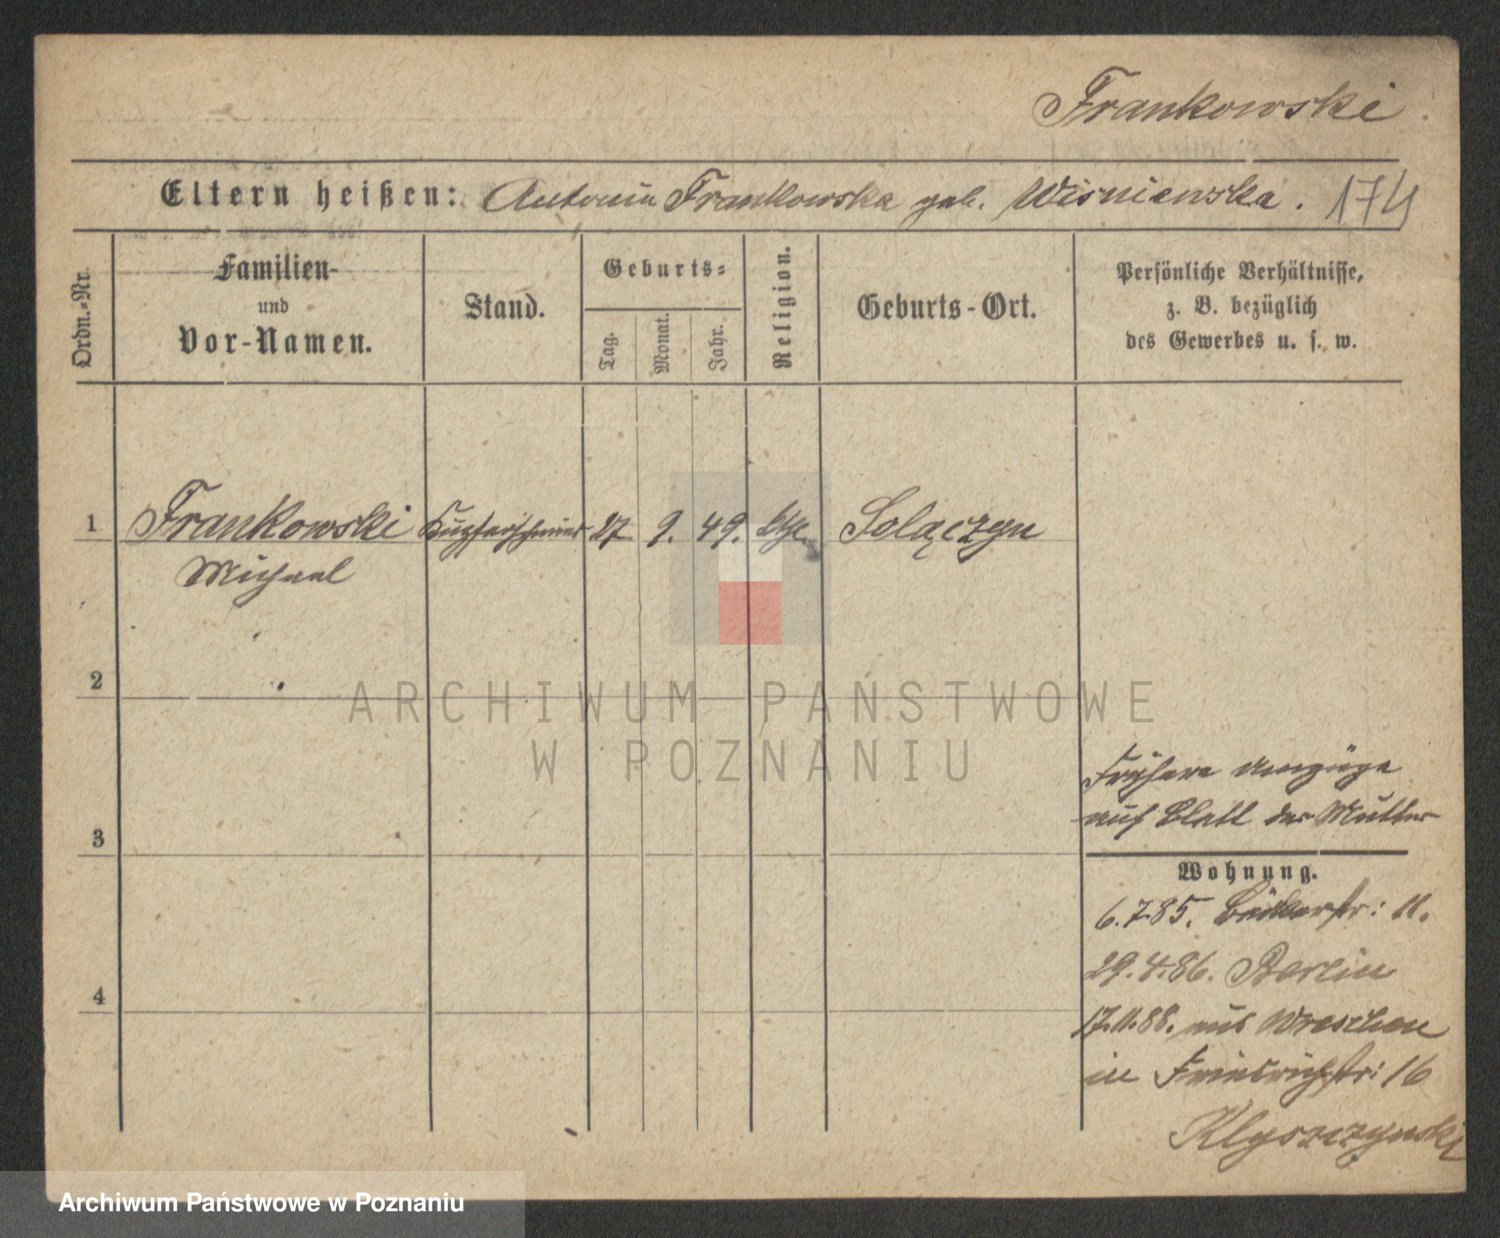 Frankowski
Eltern heißen: Antonie Frankowska geb. Wisniewska. 174
Ordn.-Nr.
Familien-
und
Vor-Namen.
Stand.
Geburts-
Tag.
Monat.
Jahr.
Religion.
Geburts-Ort.
Persönliche Verhältnisse,
z. B. bezüglich
des Gewerbes u. s. w.
1 Frankowski Kupferschmied 27 9. 49. kth. Solączyn
Michael
2
ARCHIWUM PAŃSTWOWE
W POZNANIU
Frühere Umzüge
auf Blatt der Mutter
3
Wohnung.
6.7.85. 11.
29.4.86. Berlin
4
17.11.88. aus Wreschen
in Friedrichstr: 16
Klyszczynski
Archiwum Państwowe w Poznaniu